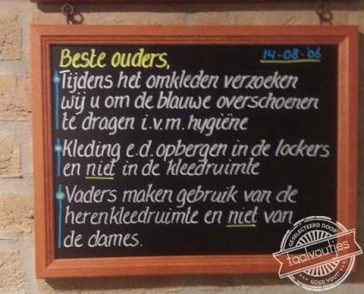 Beste ouders,
14-08-'06
Tijdens het omkleden verzoeken
wij u om de blauwe overschoenen
te dragen i.v.m. hygiëne
Kleding e.d. opbergen in de lockers
en niet in de kleedruimte
Vaders maken gebruik van de
herenkleedruimte en niet van
de dames.
GESELECTEERD DOOR
taalvoutjes
GOED VOUT!